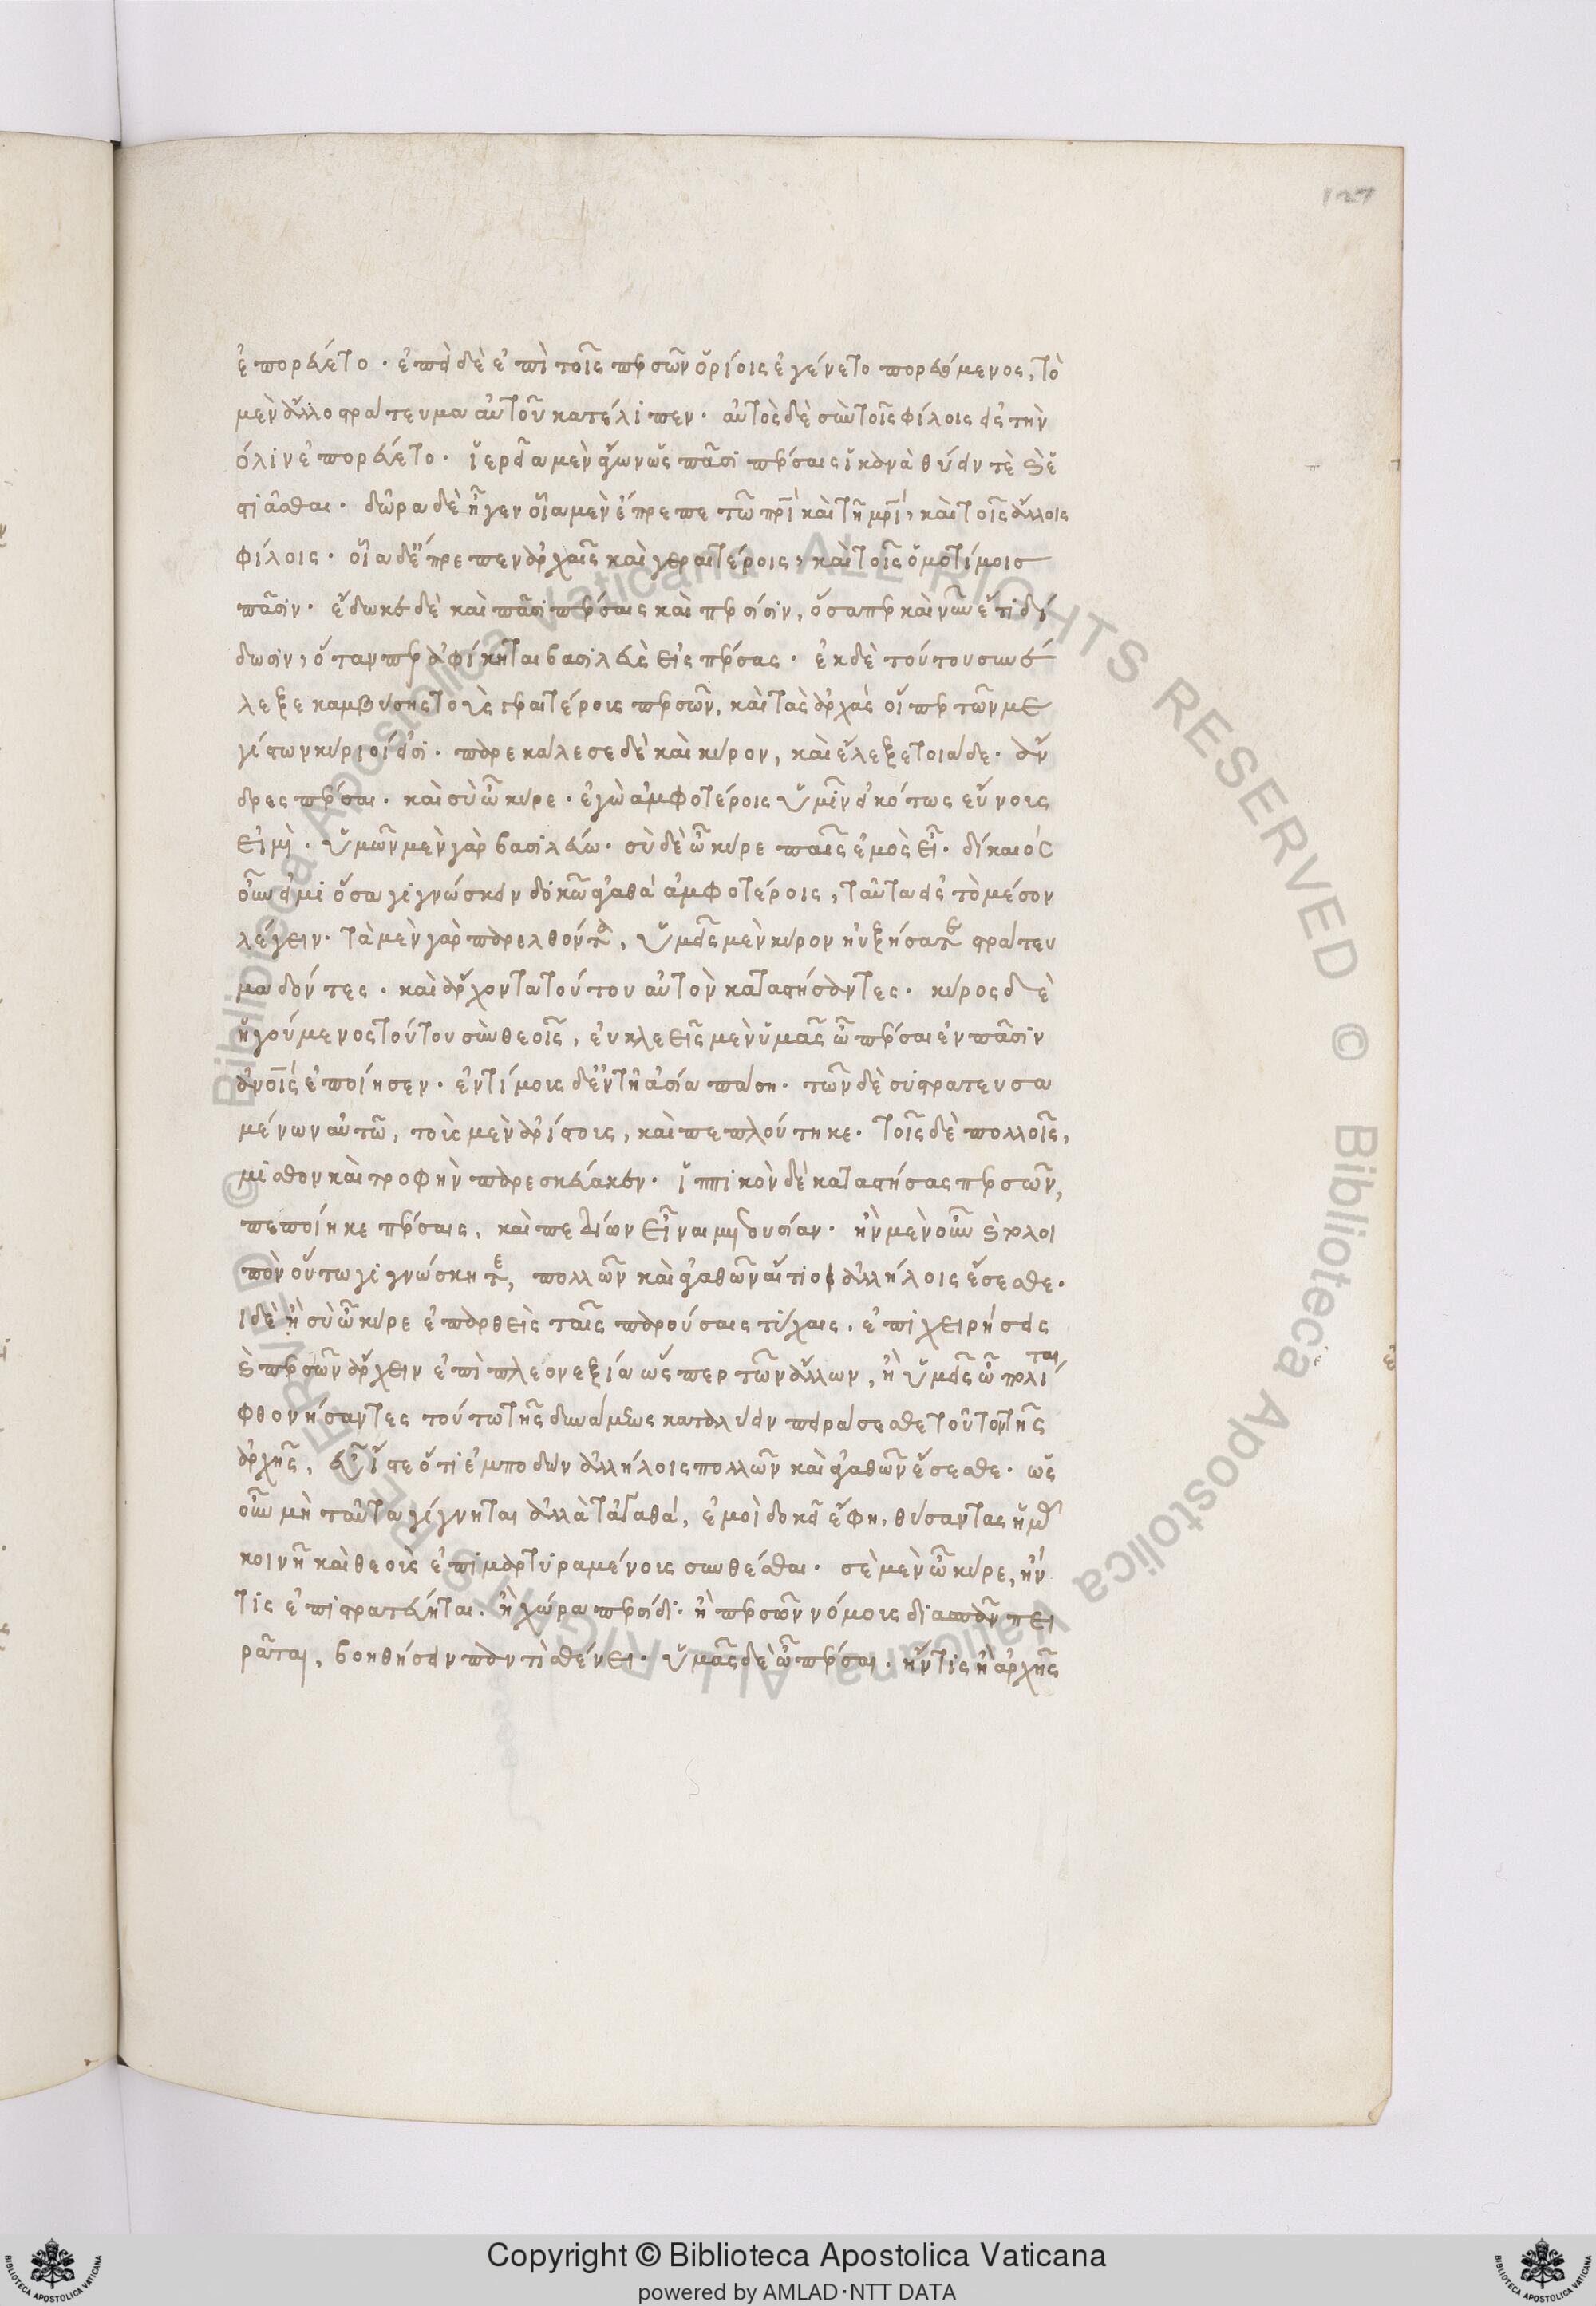 127
ἐπορεύετο. ἐπεὶ δὲ ἐπὶ τοῖς περσῶν ὁρίοις ἐγένετο πορευόμενος, τὸ
μὲν ἄλλο στράτευμα αὐτοῦ κατέλιπεν. αὐτὸς δὲ σὺν τοῖς φίλοις εἰς τὴν
όλιν ἐπορεύετο. ἱερεῖα μὲν ἄγων ὡς πᾶσι πέρσαις ἱκανὰ θύειν τὲ καὶ ἑ
στιᾶσθαι. δῶρα δὲ ἦγεν οἷα μὲν ἔπρεπε τῶ πρὶ καὶ τῆ μρὶ, καὶ τοῖς ἄλλοις
φίλοις. οἷα δ' ἔπρεπεν ἀρχαῖς καὶ γεραιτέροις, καὶ τοῖς ὁμοτίμοις
πᾶσιν. ἔδωκε δὲ καὶ πᾶσι πέρσαις καὶ περσίσιν, ὅσαπερ καὶ νῦν ἔτι δί
δωσιν, ὅτανπερ ἀφίκηται βασιλεὺς εἰς πέρσας. ἐκ δὲ τούτου συνέ
λεξε καμβύσης τοὺς γεραιτέροις περσῶν, καὶ τὰς ἀρχὰς οἵπερ τῶν με
γίστων κύριοί εἰσι. παρεκάλεσε δὲ καὶ κῦρον, καὶ ἔλεξε τοιάδε. ἄν
δρες πέρσαι. καὶ σὺ ὦ κῦρε. ἐγὼ ἀμφοτέροις ὑμῖν εἰκότως εὔνοις
εἰμὶ. ὑμῶν μὲν γὰρ βασιλεύω. σὺ δὲ ὦ κῦρε παῖς ἐμὸς εἶ. δίκαιός
οὖν εἰμι ὅσα γιγνώσκειν δοκῶ ἀγαθὰ ἀμφοτέροις, ταῦτα εἰς τὸ μέσον
λέγειν. τὰ μὲν γὰρ παρελθόντα, ὑμεῖς μὲν κῦρον ηὐξήσατε στράτευ
μα δόντες. καὶ ἄρχοντα τούτου αὐτὸν καταστήσαντες. κῦρος δὲ
ἡγούμενος τούτου σὺν θεοῖς, εὐκλεεῖς μὲν ὑμᾶς ὦ πέρσαι ἐν πᾶσιν
ἀνοις ἐποίησεν. ἐντίμοις δ' ἐν τῆ ἀσία πάση. τῶν δὲ συστρατευσα
μένων αὐτῶ, τοὶς μὲν ἀρίστοις, καὶ πεπλούτηκε. τοῖς δὲ πολλοῖς,
μισθὸν καὶ τροφὴν παρεσκεύακεν. ἱππικὸν δὲ καταστήσας περσῶν,
πεποίηκε πέρσαις, καὶ πεδίων εἶναι μετουσίαν. ἢν μὲν οὖν καὶ τολοι
πὸν οὕτω γιγνώσκητε, πολλῶν καὶ ἀγαθῶν αἴτιοι ἀλλήλοις ἔσεσθε.
ι δὲ ἢ σὺ ὦ κῦρε ἐπαρθεὶς ταῖς παρούσαις τύχαις, ἐπιχειρήσεις
καὶ περσῶν ἄρχειν ἐπὶ πλεονεξία ὥσπερ τῶν ἄλλων, ἢ ὑμεῖς ὦ πολῖται
φθονήσαντες τούτω τῆς δυνάμεως καταλύειν πειράσεσθε τοῦτον τῆς
ἀρχῆς, εὖ ἴστε ὅτι ἐμποδὼν ἀλλήλοις πολλῶν καὶ ἀγαθῶν ἔσεσθε. ὡς
οὖν μὴ ταῦτα γίγνηται ἀλλὰ τἀγαθὰ, ἐμοὶ δοκεῖ ἔφη, θύσαντας ἡμᾶς
κοινῆ καὶ θεοὶς ἐπιμαρτυραμένοις συνθέσθαι. σὲ μὲν ὦ κῦρε, ἤν
τις ἐπιστρατεύηται. ἢ χώρα περσίδι. ἢ περσῶν νόμοις διασπᾶν πει
ρᾶται, βοηθήσειν παντὶ σθένει. ὑμᾶς δὲ ὦ πέρσαι. ἤν τις ἢ ἀρχῆς
Copyright © Biblioteca Apostolica Vaticana
powered by AMLAD·NTT DATA
© Biblioteca Apostolica Vaticana ALL RIGHTS RESERVED © Biblioteca Apostolica Vaticana ALL RIGHTS RESERVED
BIBLIOTECA APOSTOLICA VATICANA
BIBLIOTECA APOSTOLICA VATICANA